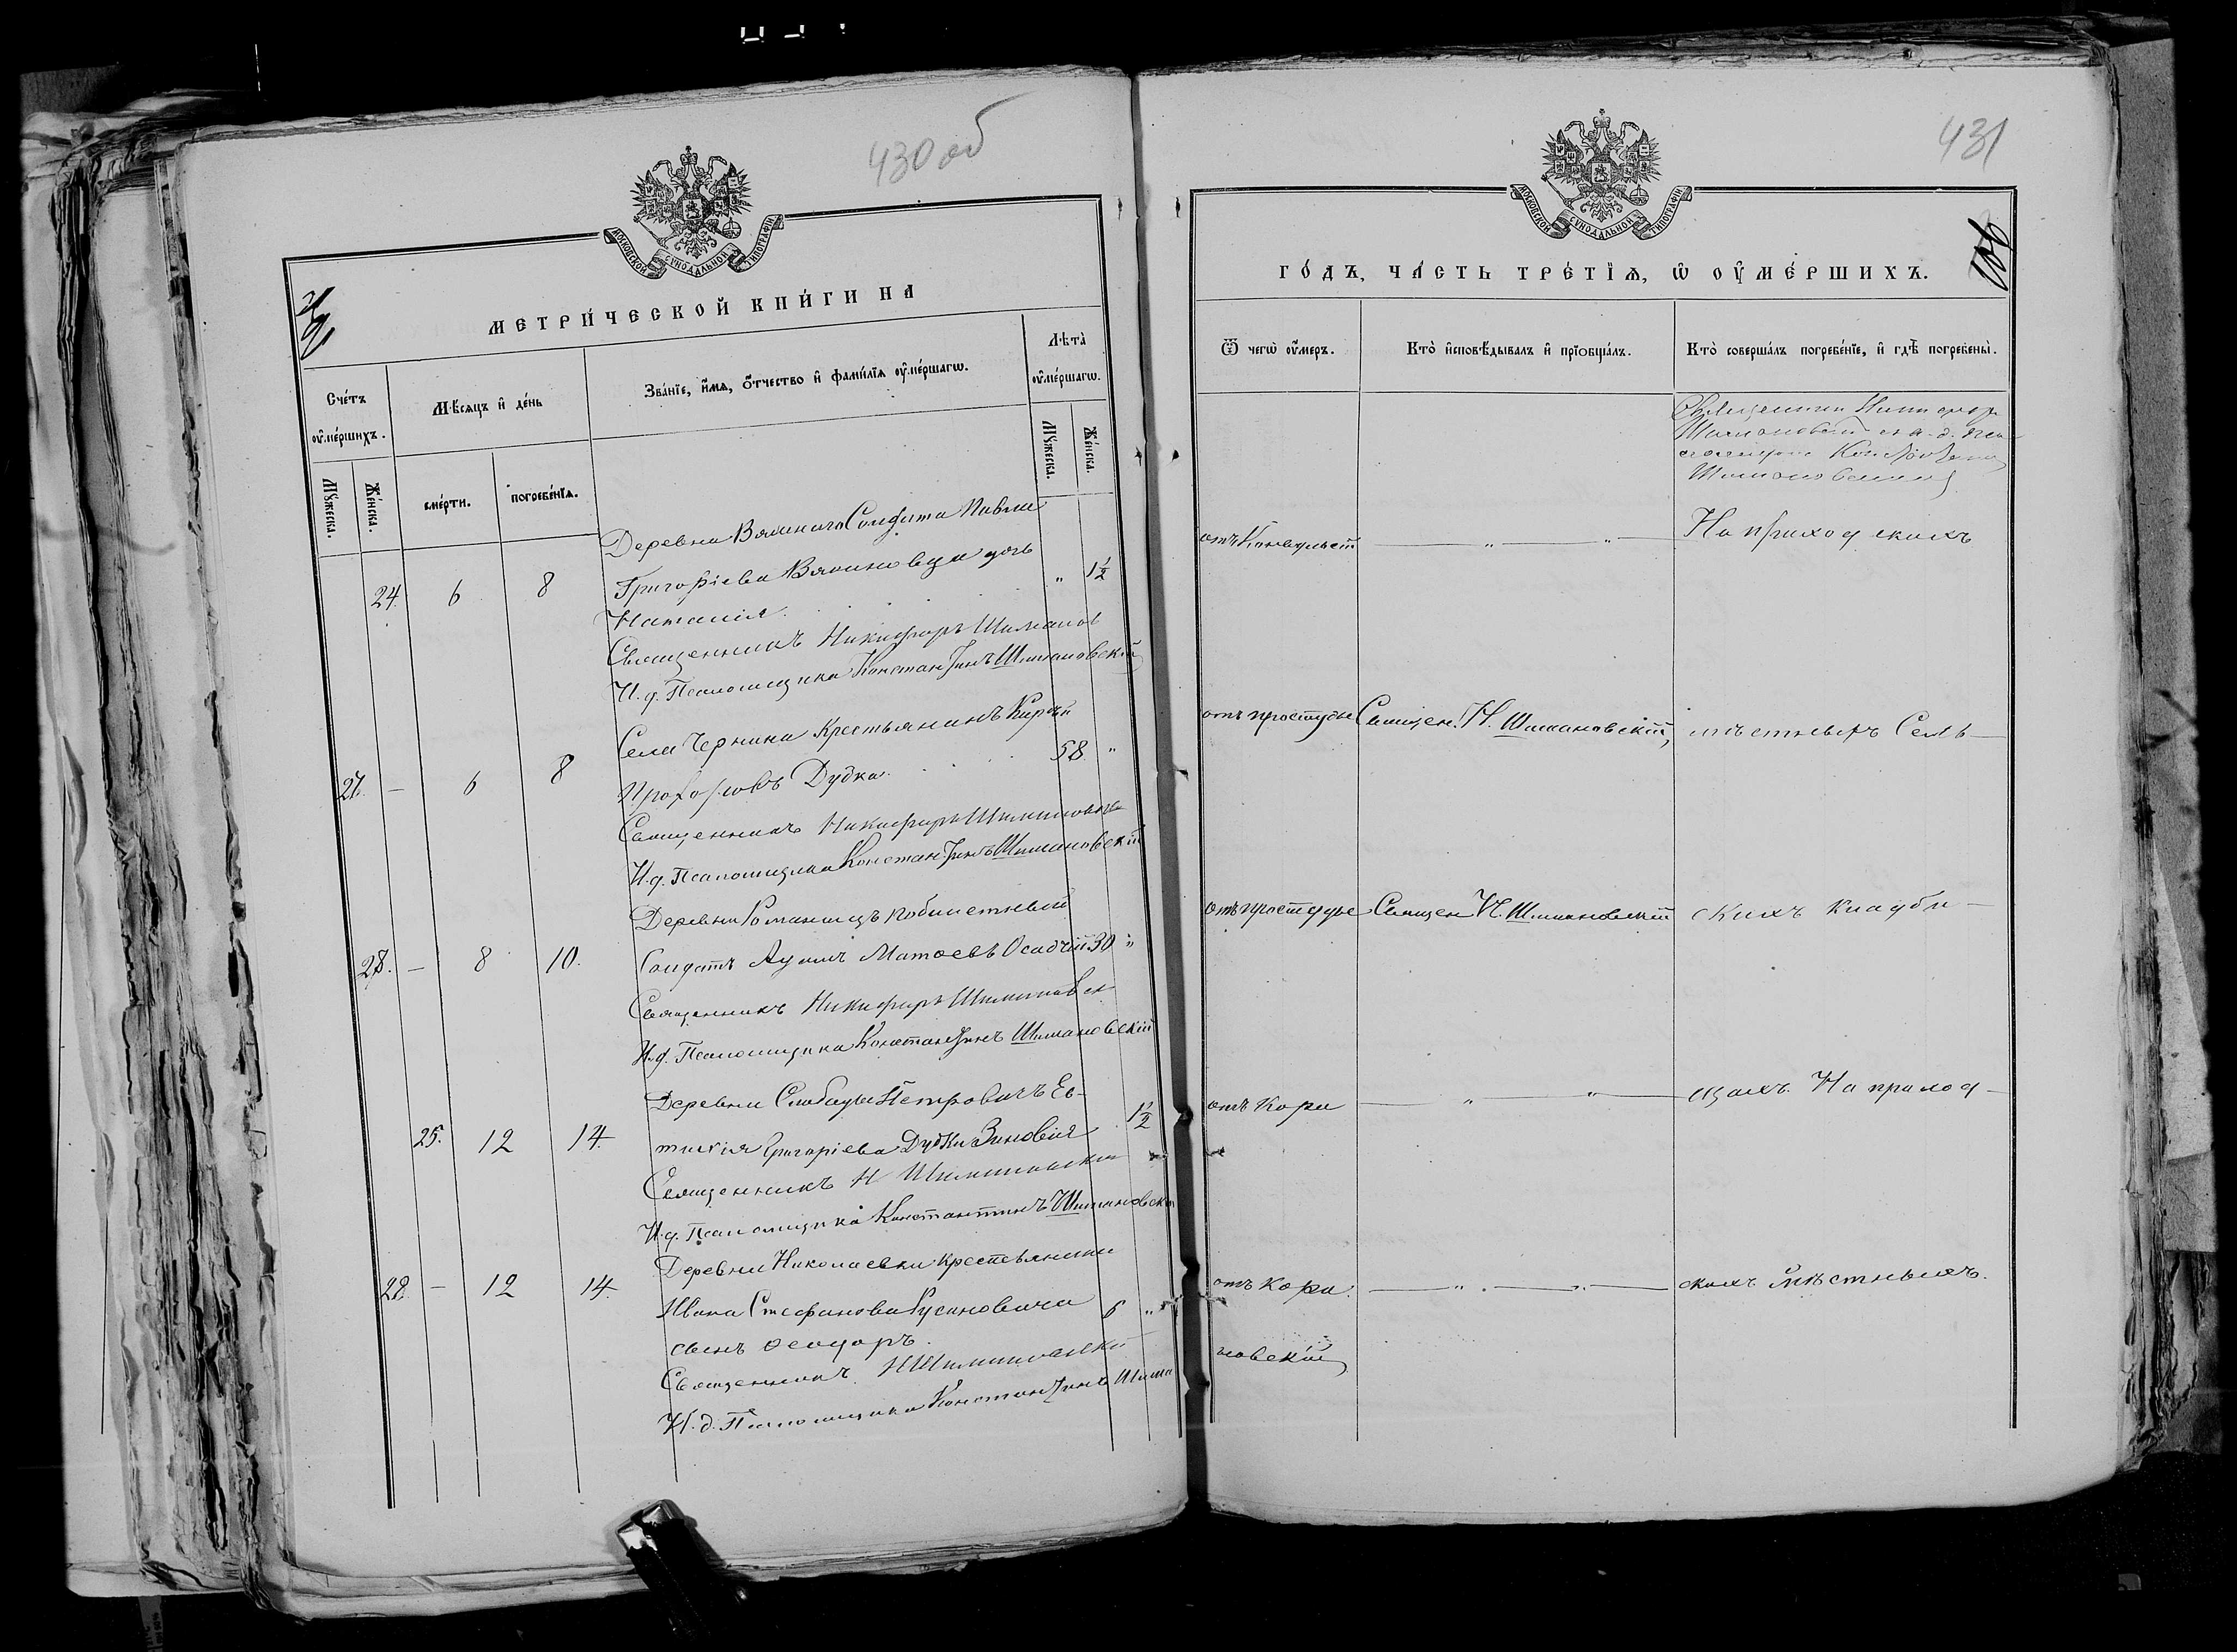 430 об
МОСКОВСКОЙ СѴНОДАЛЬНОЙ ТИПОГРАФІИ
МЕТРИ́ЧЕСКОЙ КНИ́ГИ НА
Сче́тъ ᲂу҆ме́ршихъ.
Мѣ́сяцъ и҆ де́нь
Зва́нїе, и҆́мѧ, ѻ҆́тчество и҆ фами́лїѧ ᲂу҆ме́ршагѡ.
Лѣта̀ ᲂу҆ме́ршагѡ.
Мꙋ́жеска.
Же́нска.
сме́рти.
погребе́нїѧ.
Мꙋ́жеска.
Же́нска.
Деревни Солдата Павла
24. 6 8 Григоріева дочь " 1½
Наталія.
Священникъ Никифоръ Шиманов
И. д. Псаломщика Константинъ Шимановскій
Села Чернина Крестьянинъ
27. — 6 8 Прохоровъ Дудка. 58 "
Священникъ Никифоръ Шимановскій
И. д. Псаломщика Константинъ Шимановскій
Деревни
28. — 8 10. Солдатъ Осадчій 30 "
Священникъ Никифоръ Шимановск
И. д. Псаломщика Константинъ Шимановскій
Деревни Слободы Петровичъ Ев-
25. 12 14. Григоріева Дудки Зиновія 1½
Священникъ Н Шимановскій
И. д. Псаломщика Константинъ Шимановскій
Деревни Николаевки крестьянина
28. — 12 14. Ивана Стефанова Русиновича 6 "
сынъ Ѳеодоръ.
Священникъ Н Шимановскій
И. д. Псаломщика Константинъ Шима
431
МОСКОВСКОЙ СѴНОДАЛЬНОЙ ТИПОГРАФІИ
ГО́ДЪ, ЧА́СТЬ ТРЕ́ТЇѦ, Ѡ҆ ОУ҆МЕ́РШИХЪ.
Ѿ чегѡ̀ ᲂу҆́меръ.
Кто̀ и҆сповѣ́дывалъ и҆ прїѻбща́лъ.
Кто̀ соверша́лъ погребе́нїе, и҆ гдѣ̀ погребены̀.
Священникъ Никифоръ
Шимановскій съ и. д. пса-
ломщика Константин
Шимановскимъ
отъ Конвульсій — " — " — На приход скихъ
отъ простуды Священ. Н. Шимановскій, мѣстныхъ Сель—
отъ простуды Священ Н. Шимановскій скихъ кладби—
отъ Кори — " — " — щахъ. На приход—
отъ Кори. — " — " — скихъ мѣстныхъ.
новскій